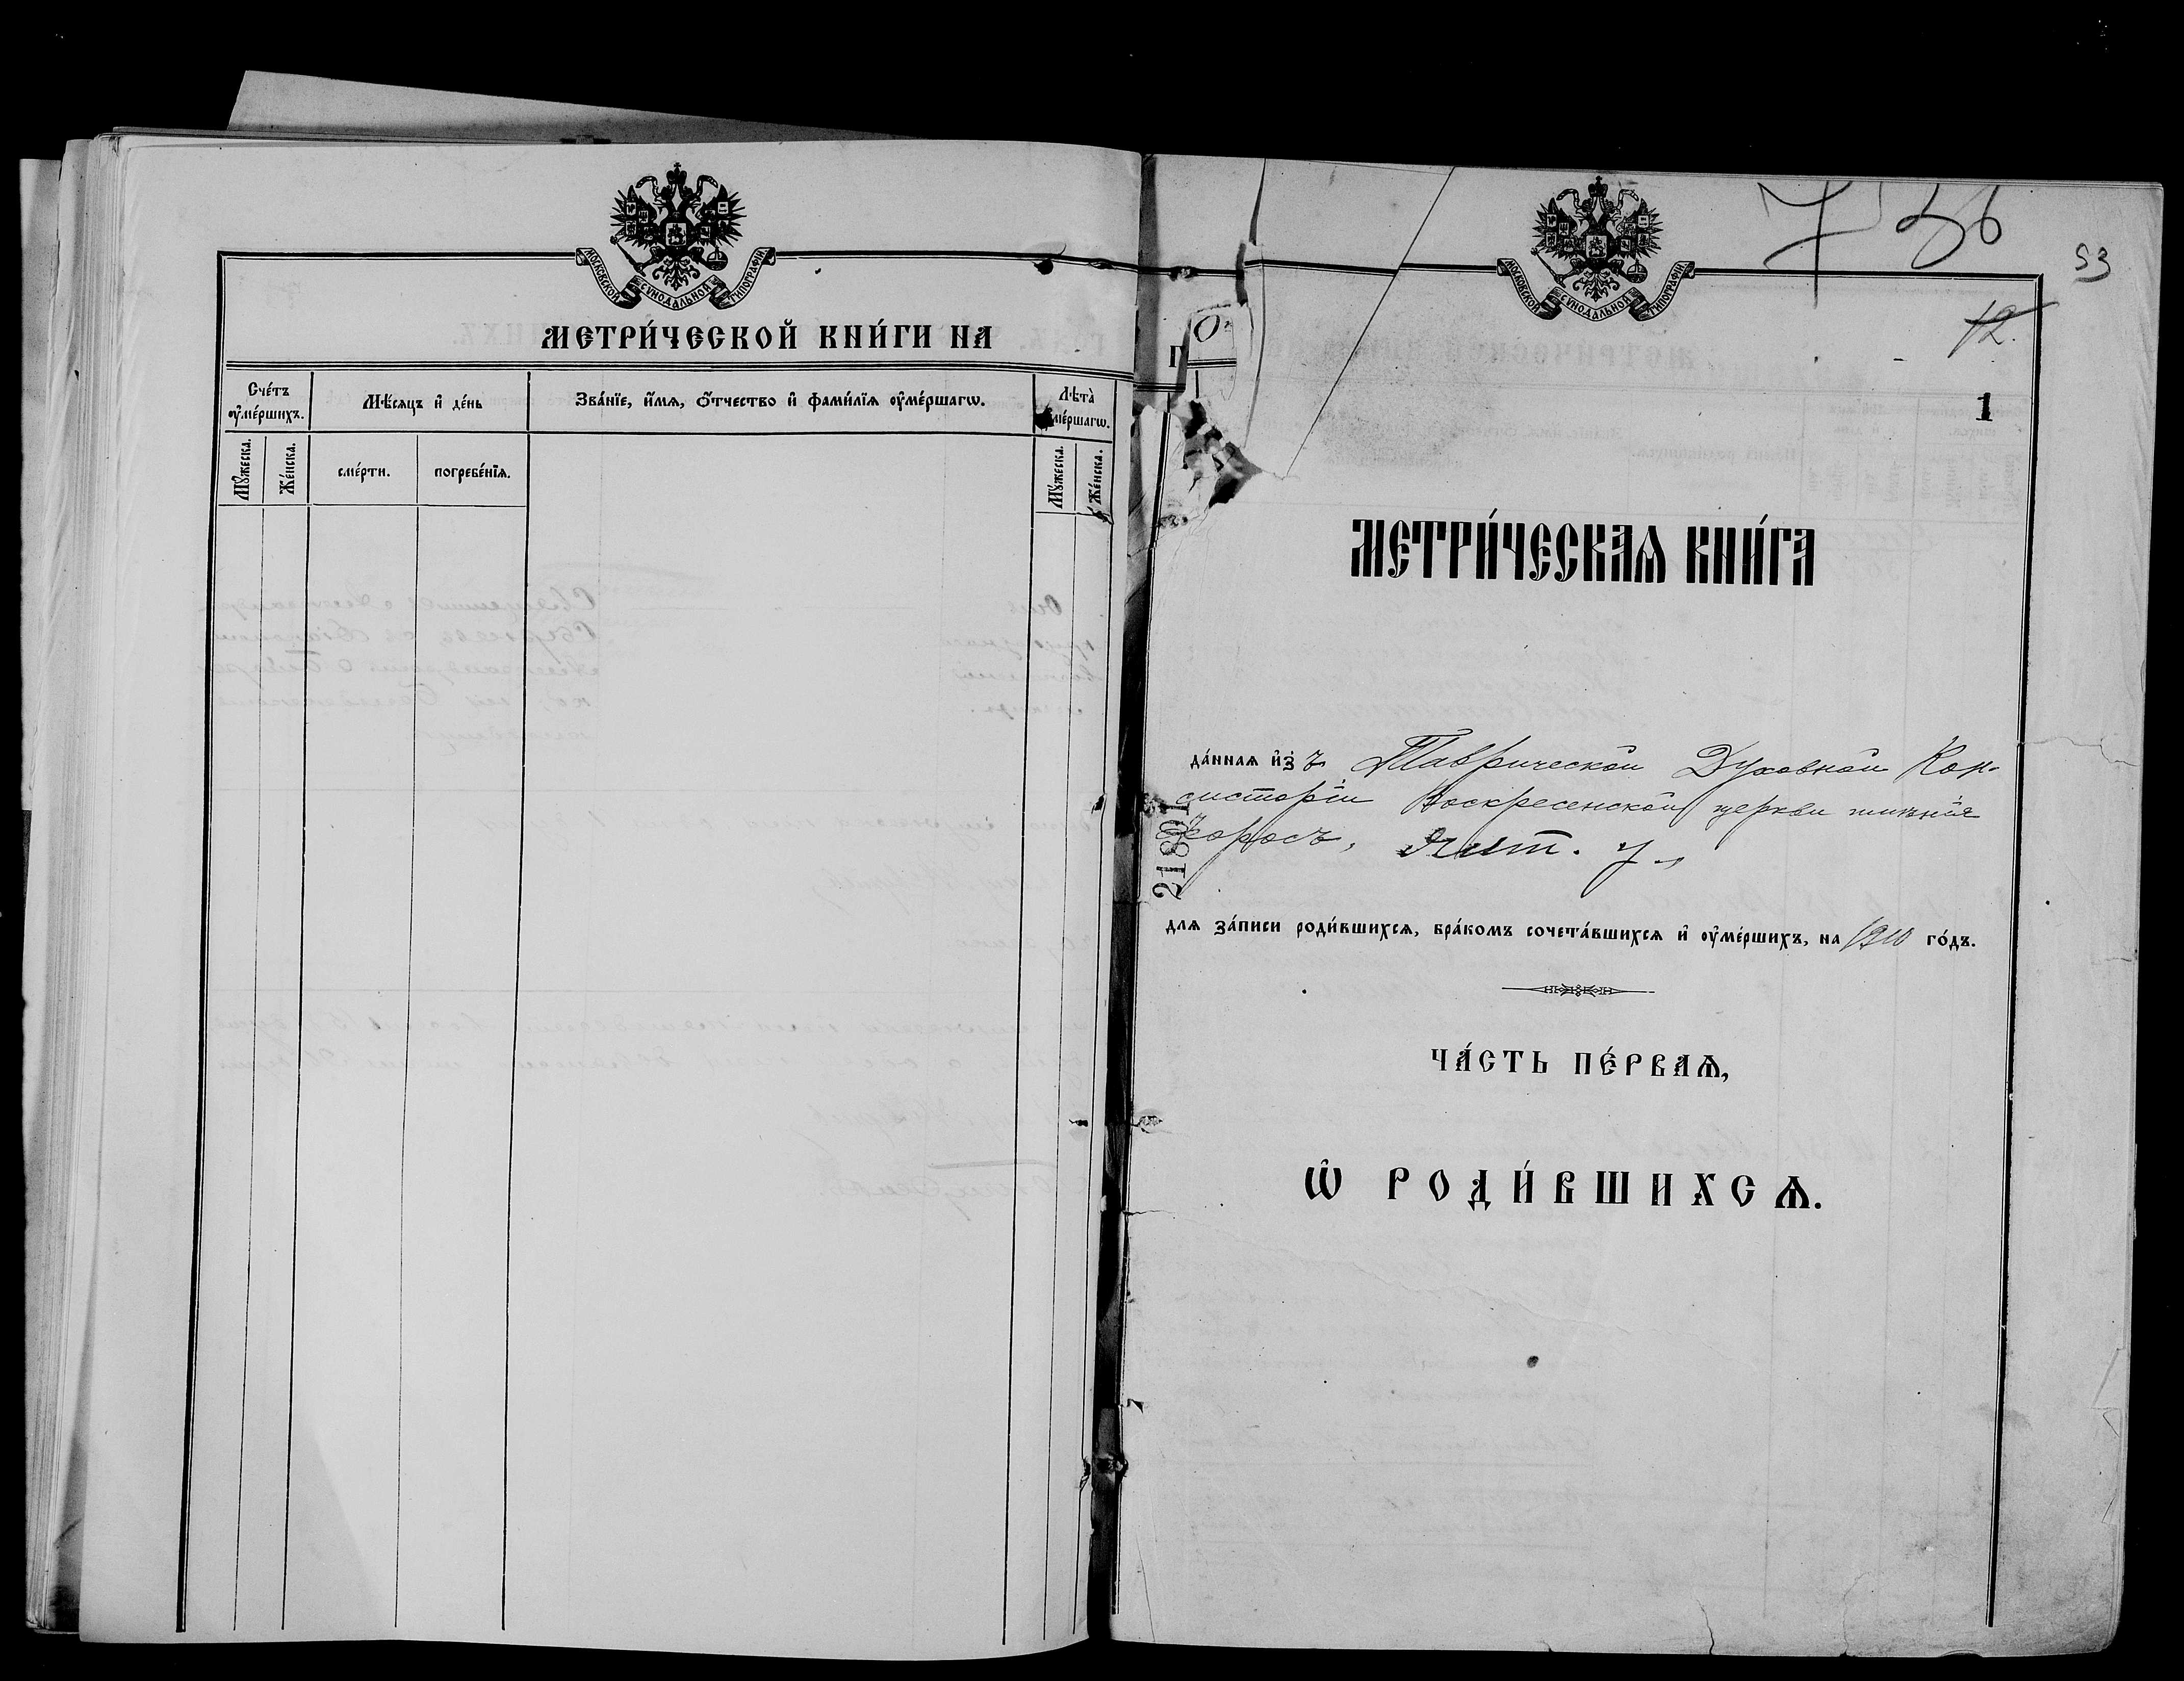 МОСКОВСКОЙ СѴНОДАЛЬНОЙ ТИПОГРАФІИ
МЕТРИ́ЧЕСКОЙ КНИ́ГИ НА
Сче́тъ ᲂу҆ме́ршихъ.
Мѣ́сяцъ и҆ де́нь
Зва́нїе, и҆́мѧ, ѻ҆́тчество и҆ фами́лїѧ ᲂу҆ме́ршагѡ.
Лѣ́та̀ ᲂу҆ме́ршагѡ.
Мꙋ́жеска.
Же́нска.
сме́рти.
погребе́нїѧ.
Мꙋ́жеска.
Же́нска.
МОСКОВСКОЙ СѴНОДАЛЬНОЙ ТИПОГРАФІИ
736
53
12.
1
МЕТРИ́ЧЕСКАѦ КНИ́ГА
да́ннаѧ и҆зъ Таврической Духовной Кон-
систоріи Воскресенской церкви имѣнія
Форосъ, Ялт. у.,
21801
длѧ за́писи роди́вшихсѧ, бра́комъ сочета́вшихсѧ и҆ ᲂу҆ме́ршихъ, на 1910 го́дъ.
ЧА́СТЬ ПЕ́РВАѦ,
Ѡ҆ РОДИ́ВШИХСѦ.